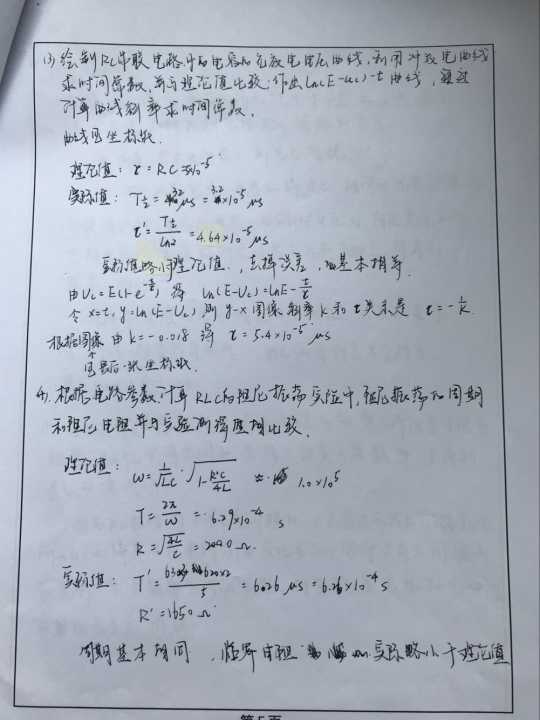 (3) 绘制RC串联电路中的电容的充放电电压曲线,利用对放电曲线
求时间常数,并与理论值比较.作出ln(E-uc)-t曲线,通过
计算曲线斜率求时间常数.
曲线见坐标纸.
理论值: τ=RC=5×10^-5
实际值: T½=32μs=3.2×10^-5μs
τ'=T½/ln2=4.64×10^-5μs
实际值略小于理论值,去掉误差,基本相等.
由Uc=E(1-e^-t/τ) 得 ln(E-Uc)=lnE-t/τ
令x=t,y=ln(E-Uc) 则y-x图像斜率k和τ关系是 τ=-1/k.
根据图像 由k=-0.018 得 τ=5.4×10^-5μs
见最后一张坐标纸.
(4). 根据电路参数计算RLC的阻尼振荡实验中,阻尼振荡的周期
和阻尼电阻并与实验测得值相比较.
理论值: ω=1/√LC·√1-R²C/4L ≈ 1.0×10^5
T=2π/ω=6.29×10^-4 s
R=√4L/C=2000Ω
实际值: T'= /5=6026μs=6.26×10^-4 s
R'=1650Ω
周期基本相同,临界电阻 实际略小于理论值
第5页